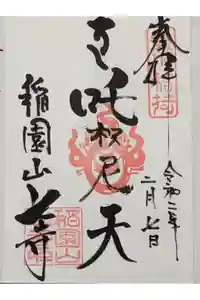 奉拝
令和二年
二月七日
吒枳尼天
稲園山 七寺
稲園山